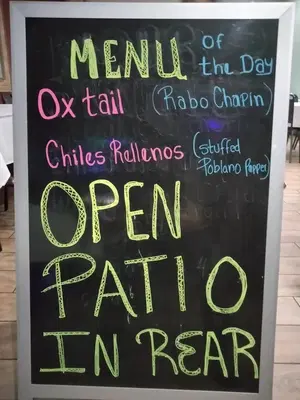 MENU of the Day
Ox tail (Rabo Chapin)
Chiles Rellenos (stuffed Poblano Pepper)
OPEN
PATIO
IN REAR